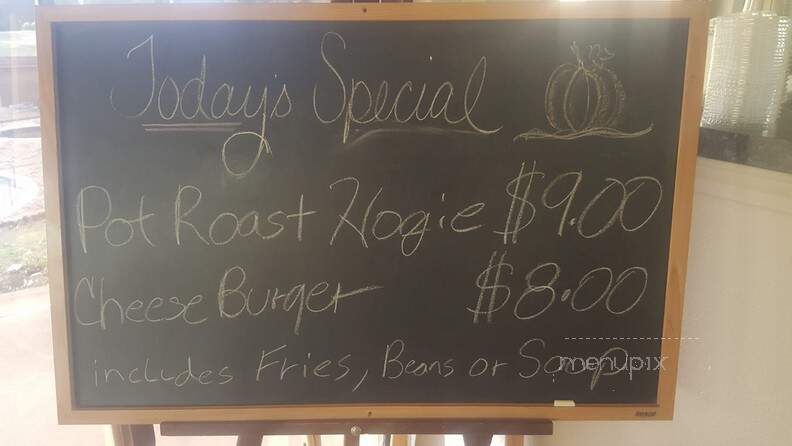 Today's Special
Pot Roast Hogie $9.00
Cheese Burger $8.00
includes Fries, Beans or Soop.
menupix